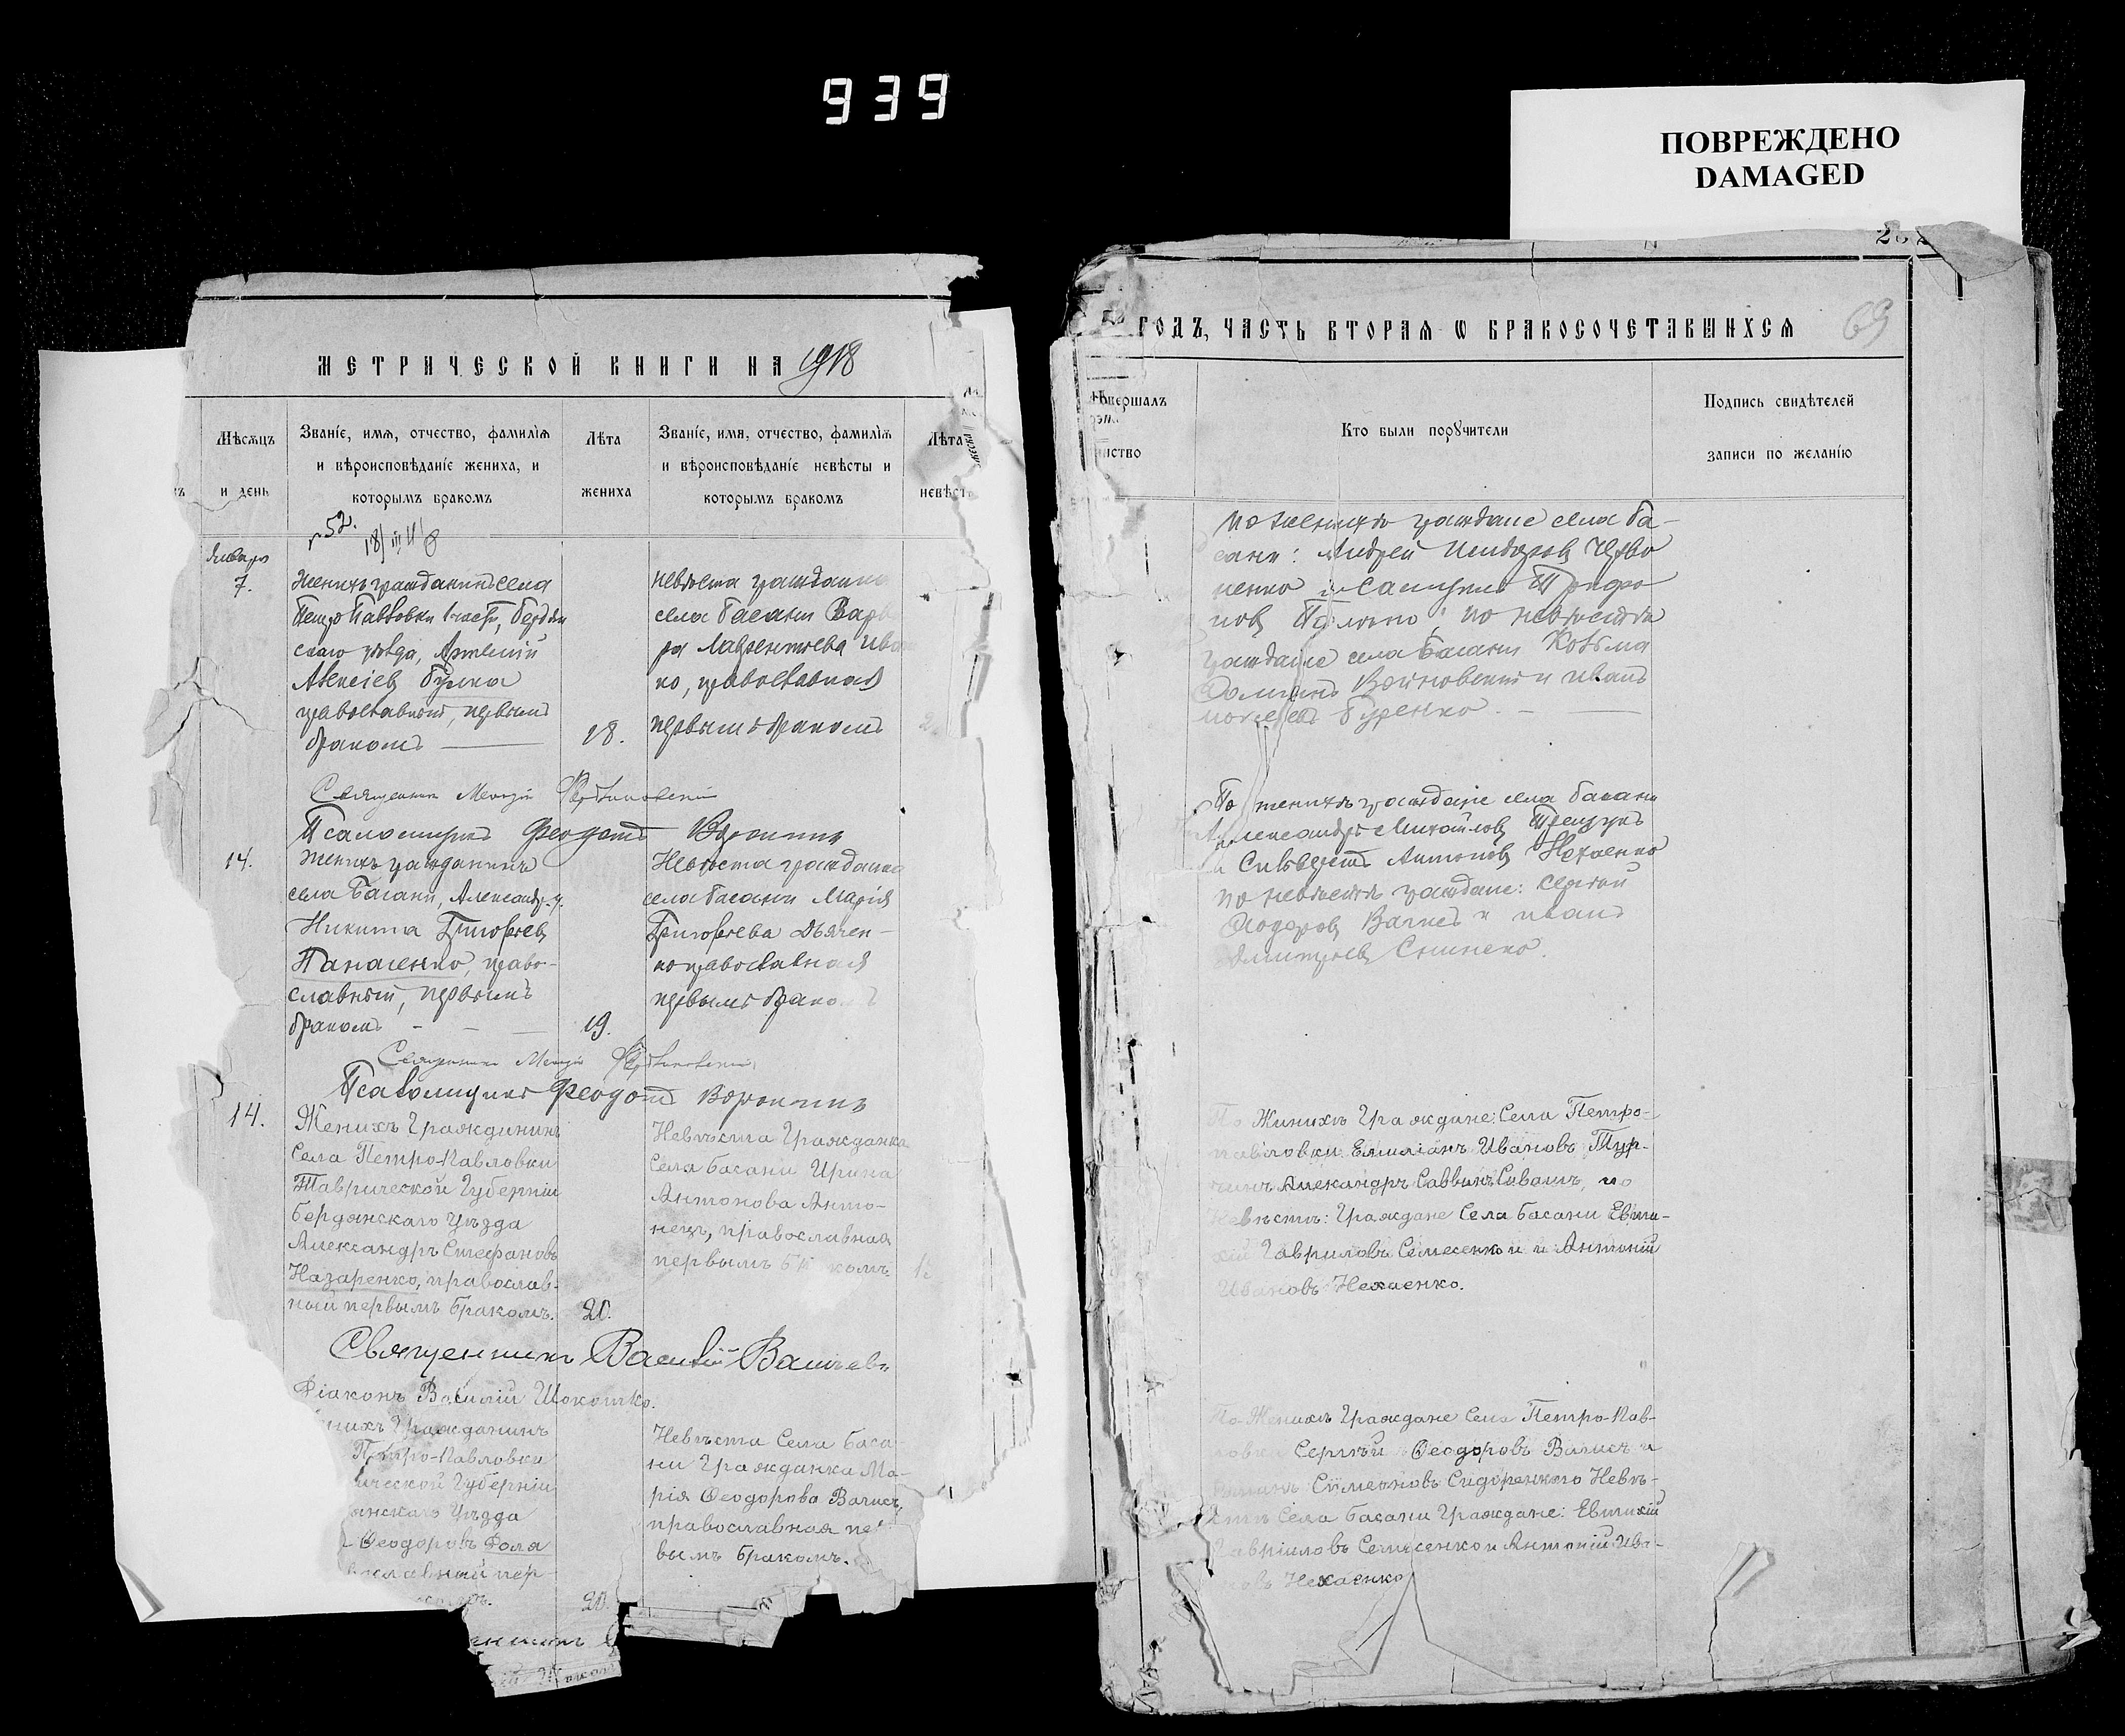 939
ПОВРЕЖДЕНО
DAMAGED
МЕТРИЧЕСКОЙ КНИГИ НА 1918
Мѣсяцъ
и день
Званіе, имя, отчество, фамилія
и вѣроисповѣданіе жениха, и
которымъ бракомъ
Лѣта
жениха
Званіе, имя, отчество, фамилія
и вѣроисповѣданіе невѣсты и
которымъ бракомъ
Лѣта
невѣст
52.
Января
7.
Женихъ гражданинъ села
Петро Павловки 1 части, Бердян
скаго уѣзда, Артемій
Алексіевъ
православный, первымъ
бракомъ
18.
Невѣста гражданка
села Басани Варва
ра Лаврентьева Ива
но, православная
первымъ бракомъ
Священникъ
Псаломщикъ Феодотъ
14.
Женихъ гражданинъ
села Басани, Александр. у.
Никита Григорьевъ
Панасенко, право-
славный, первымъ
бракомъ
19.
Невѣста гражданка
села Басани Марія
Григорьева Дьячен-
ко православная
первымъ брако
Священникъ
Псаломщикъ Феодотъ
14.
Женихъ Гражданинъ
Села Петро-Павловки
Таврической Губерніи
Бердянскаго Уѣзда
Александръ Стефановъ
Назаренко, православ-
ный первымъ бракомъ.
20.
Невѣста Гражданка
Села Басани Ирина
Антонова Анто-
нецъ, православная
первымъ комъ.
Священникъ Василій
Діаконъ Василій Шокотко.
нихъ Гражданинъ
Петро-Павловки
ической Губерніи
янскаго Уѣзда
Феодоровъ Фоля
вославный пер-
20.
Невѣста Села Баса
ни Гражданка Ма-
рія Феодорова Вагисъ,
православная пер
вымъ бракомъ.
ГОДЪ, ЧАСТЬ ВТОРАЯ Ѡ БРАКОСОЧЕТАВШИХСЯ
69
совершалъ
нство
Кто были поручители
Подпись свидѣтелей
записи по желанію
По женихѣ граждане села Ба-
сани: Андрей
ненко и Самуилъ Трифо
новъ по невѣстѣ
граждане села Басани Козьма
и Иванъ
Буренко.
По женихѣ граждане села Басани
Александръ Михайловъ
и Сильвестръ Антоновъ Нехаенко
по невѣстѣ граждане: Сергій
Феодоровъ Вагисъ и Иванъ
Дмитріевъ
По Жинихѣ Граждане: Села Петро-
павловки Емиліанъ Ивановъ Тур-
чинъ Александръ Саввинъ по
Невѣстѣ: Граждане Села Басани Евти-
хій Гавриловъ Семесенко и и Антоній
Ивановъ Нехаенко.
По Женихѣ Граждане Села Петро-Пав-
ловки Сергѣй Феодоровъ Вагисъ и
Симеоновъ Сидоренко по Невѣ-
стѣ Села Басани Граждане: Евтихій
Гавріиловъ Семесенко и Антоній Ива-
новъ Нехаенко